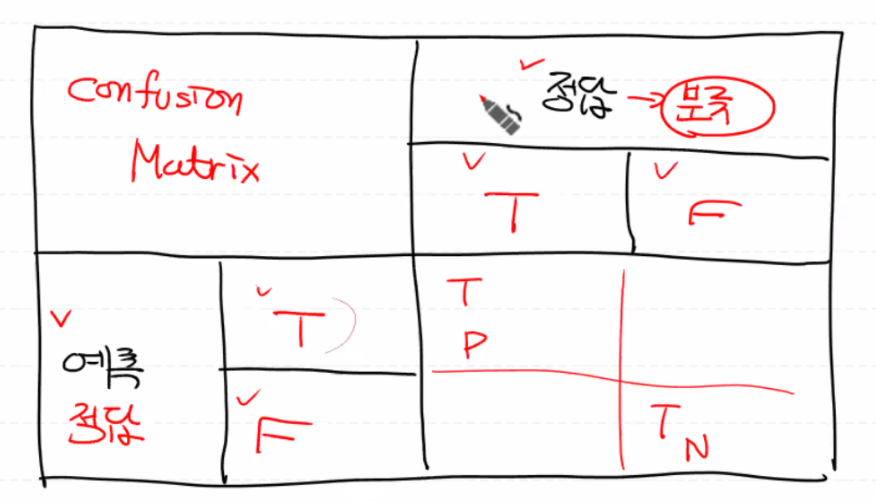 Confusion
Matrix
정답 → 분류
T
F
예측
정답
T
F
T
P
T
N